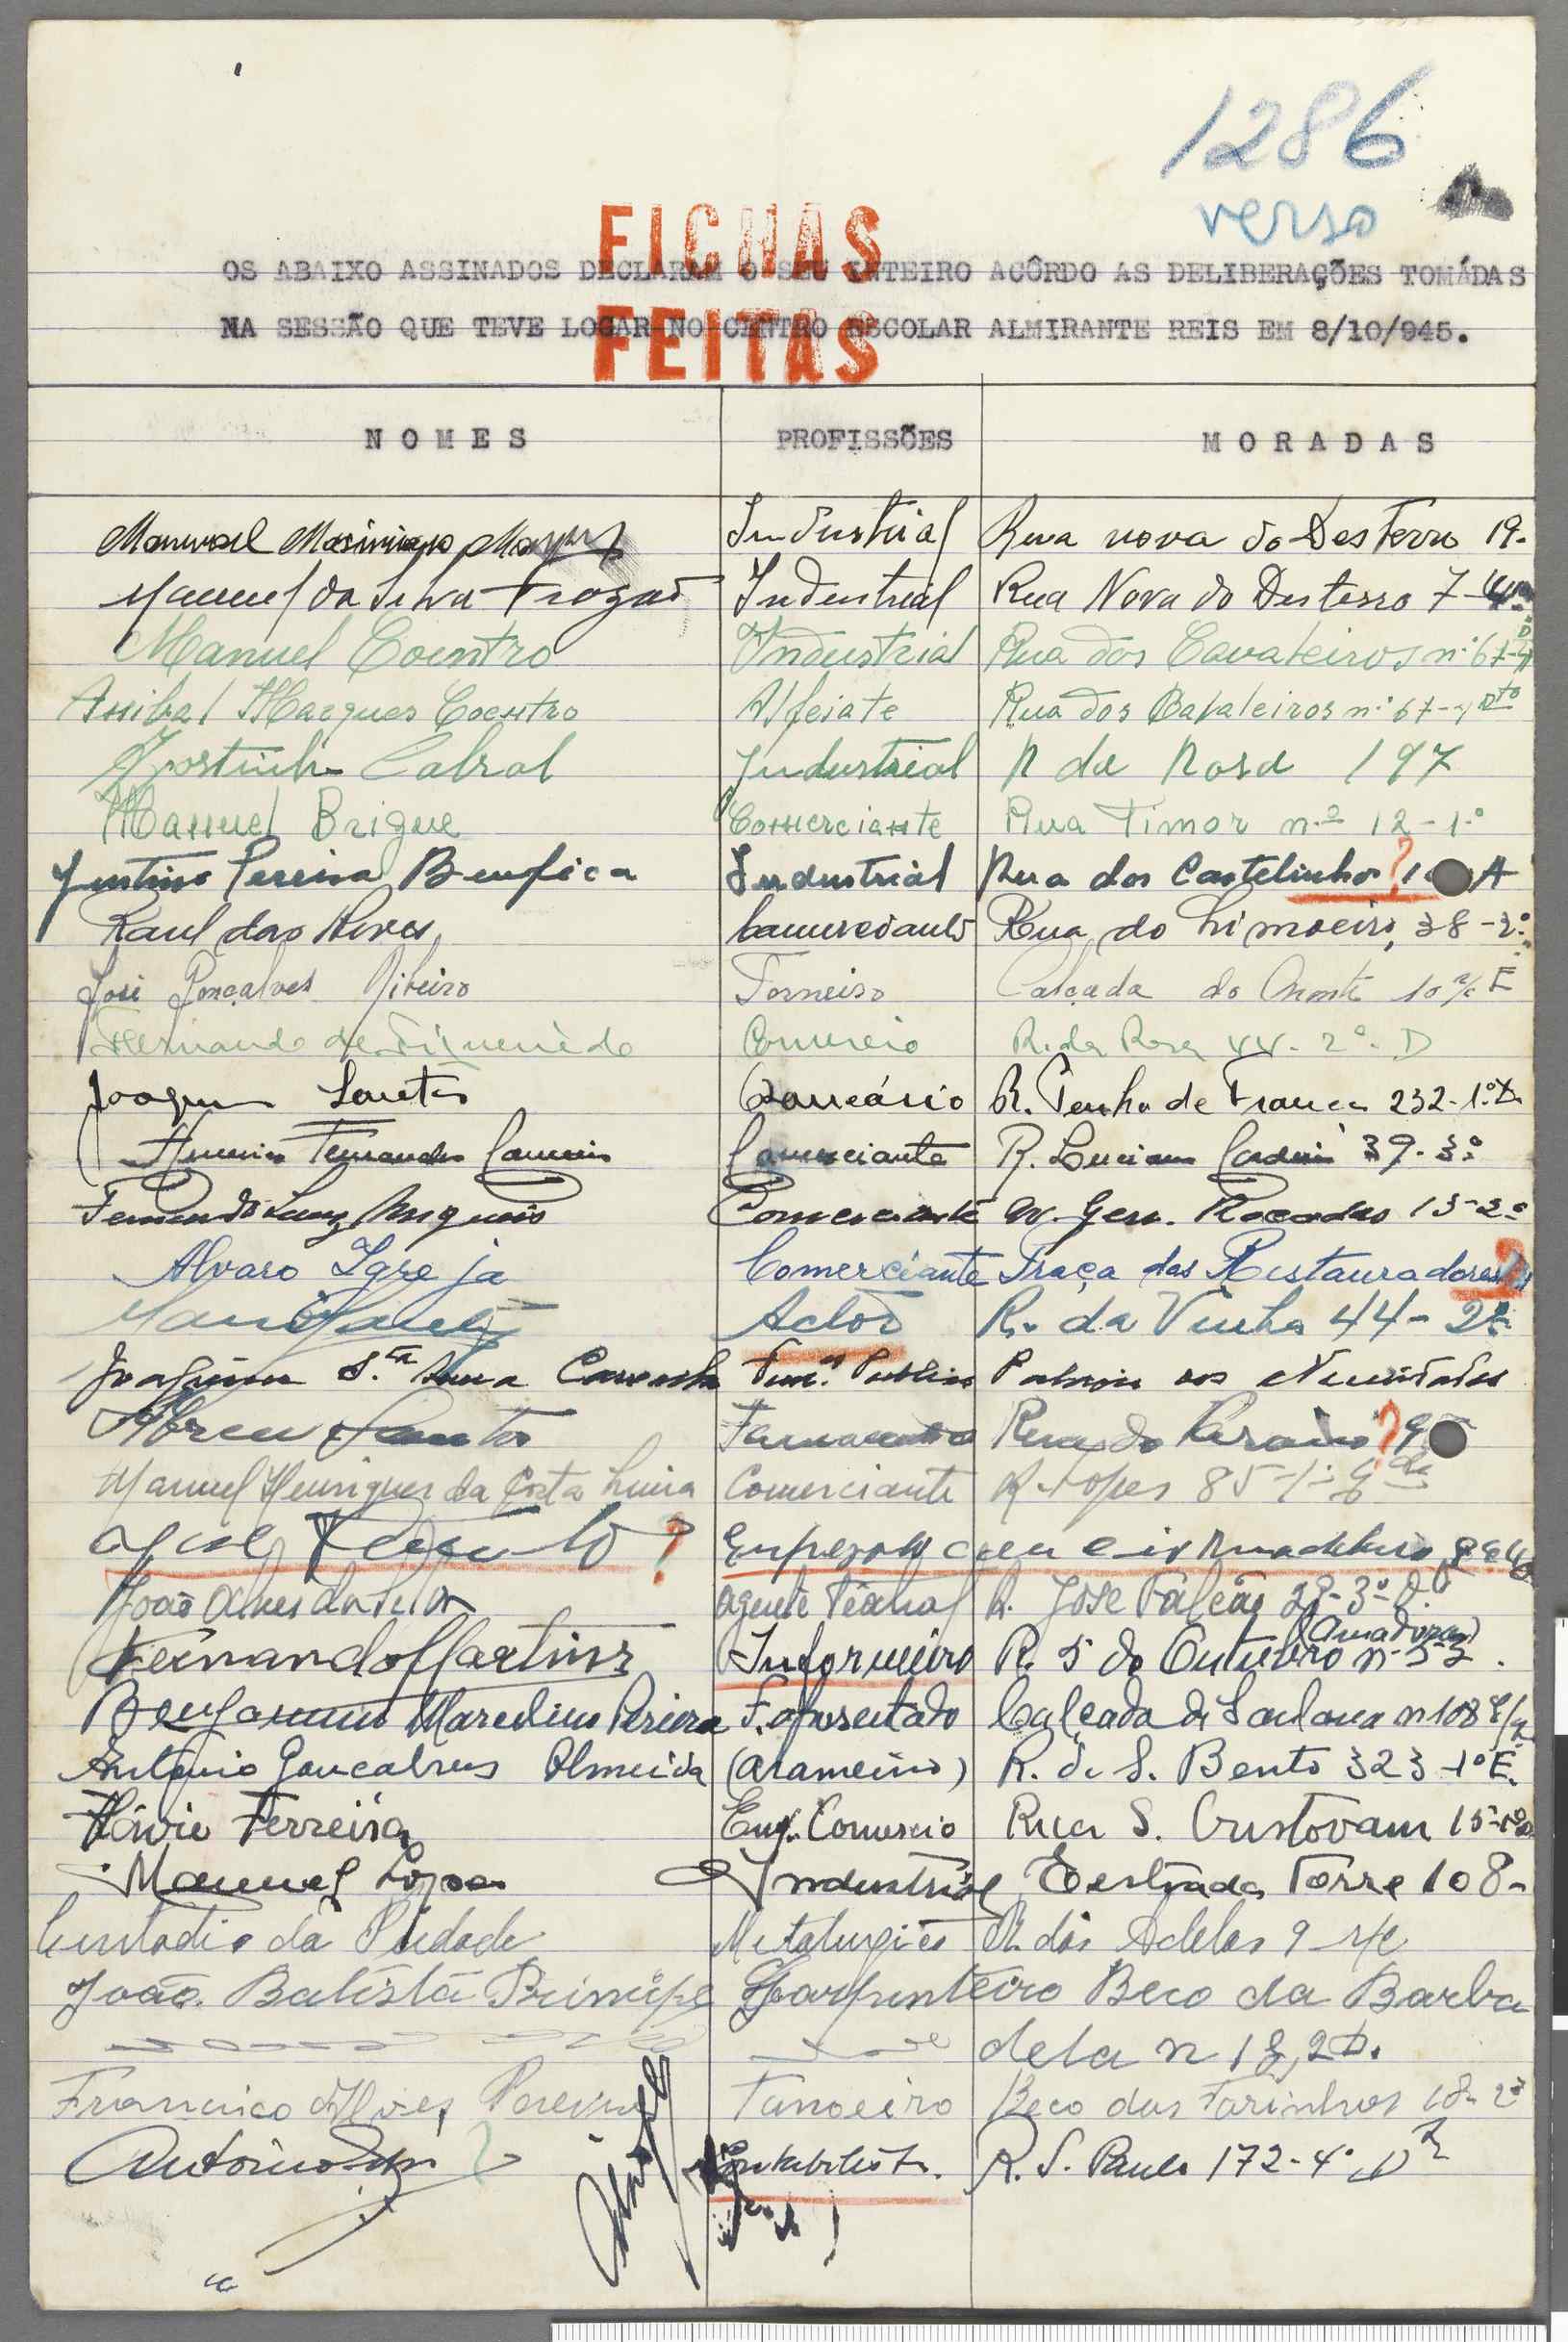 1286
verso
FICHAS
FEITAS
OS ABAIXO ASSINADOS DECLARAM O SEU INTEIRO ACÔRDO AS DELIBERAÇÕES TOMÁDAS
NA SESSÃO QUE TEVE LOGAR NO CENTRO ESCOLAR ALMIRANTE REIS EM 8/10/945.
NOMES PROFISSÕES MORADAS
Industrial Rua nova do Desterro 19-
Manuel da Silva Industrial Rua Nova do Desterro 7-
Manuel Coentro Industrial Rua dos Cavaleiros nº 67-4
Anibal Marques Coentro Alfeiate Rua dos Cavaleiros nº 67-4 Dto
Agostinho Cabral Industrial R da Rosa 197
Manuel Brigue Comerciante Rua Timor nº 12-1º
Justino Pereira Benfica Industrial Rua dos Castelinhos ? 1 A
Raul das Neves Comerciante Rua do Limoeiro, 38-2º
José Gonçalves Ribeiro Torneiro Calçada do Monte 10 r/c E
Fernando de Figueirêdo Comercio R. da Rosa 44-2º-D
Joaquim Santos Bancário R. Penha de França 232-1º D.
Fernandes Comerciante R. Luciano Cordeiro 39-3º
Fernando Comerciante Av. Gen. Roçadas 13-2º
Alvaro Igreja Comerciante Praça dos Restauradores
Actor R. da Vinha 44-2º
Joaquim S.ta Anna Func. Publico
Abreu Santos Rua do ? 9
Manuel Henriques da Costa Lima Comerciante R. Lopes 85-1º E
? 
João Alves da Silva agente Teatral R. José Falcão 28-3º D.
Fernando Martins Infermeiro R. 5 do Outubro nº 52. (Amadora)
Benjamim Marcelino Pereira F. aposentado Calçada de Santana nº 108 r/c
António Goncalves Almeida (Arameiro) R. de S. Bento 323-1º E.
Flávio Ferreira Emp. Comercio Rua S. Cristovam 15-1º
Manuel Lopes Industrial Estrada Torre 108-
Custodio da Piedade Metalurgico R. das Adelas 9 r/c
João Batista Principe Carpinteiro Beco da Barba
dela n 12, 2 D.
Francisco Alves Pereira Tanoeiro Beco das Farinhas 18-2º
António Contabilista. R. S. Paulo 172-4º D